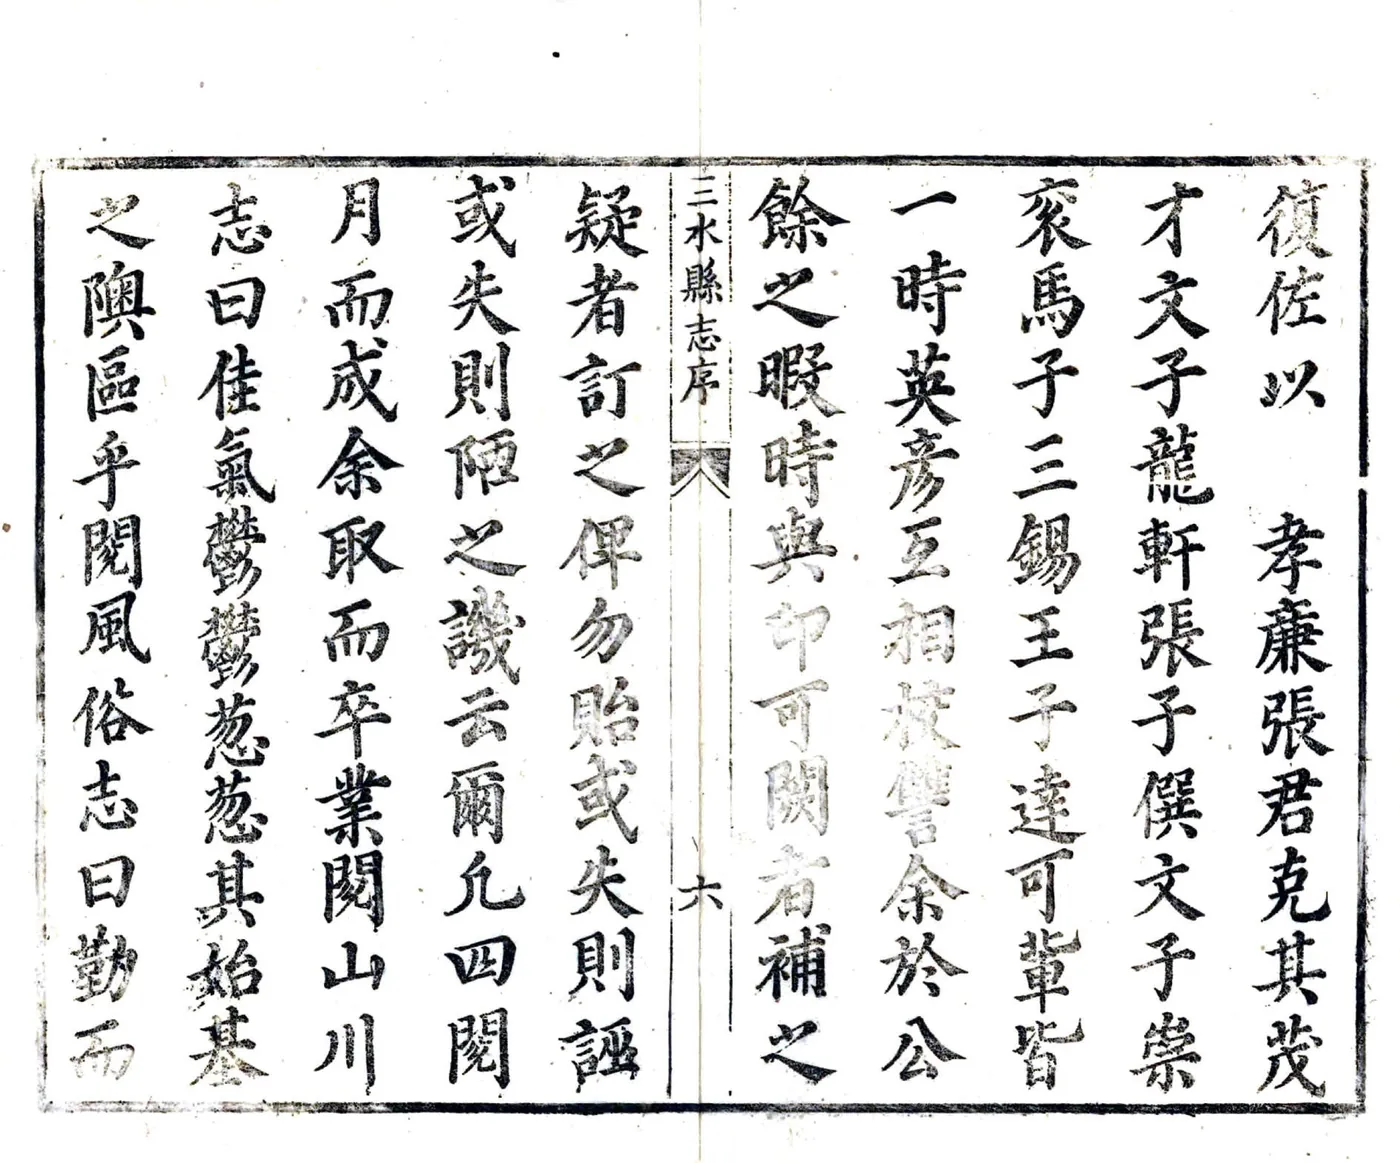 復佐以　孝廉張君克其茂
才文子龍軒張子僎文子崇
袞馬子三錫王子達可軰皆
一時英彥互相校讐余於公
餘之暇時與印可闕者補之
三水縣志序
六
疑者訂之俾勿貽或失則誣
或失則陋之譏云爾凢四閱
月而成余取而卒業閱山川
志曰佳氣鬱鬱葱葱其始基
之隩區乎閱風俗志曰勤而